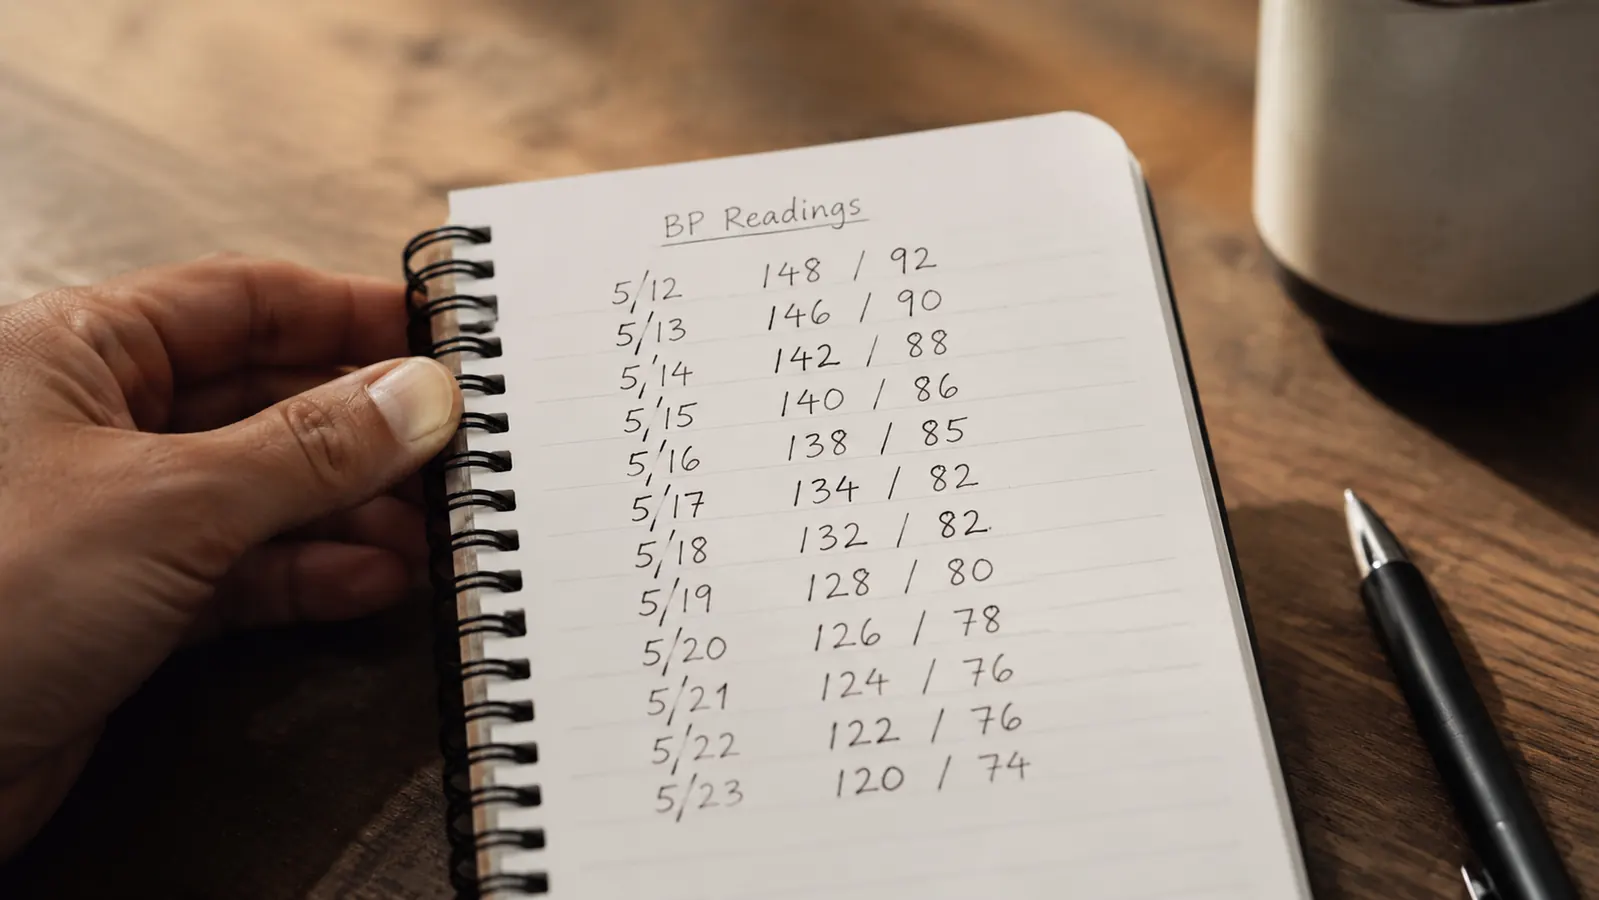 BP Readings
5/12 148 / 92
5/13 146 / 90
5/14 142 / 88
5/15 140 / 86
5/16 138 / 85
5/17 134 / 82
5/18 132 / 82
5/19 128 / 80
5/20 126 / 78
5/21 124 / 76
5/22 122 / 76
5/23 120 / 74